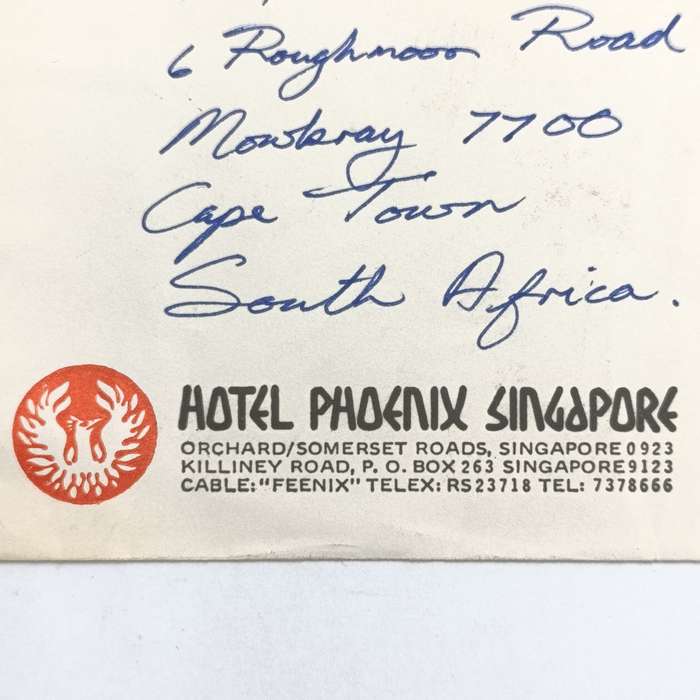 6 Roughmoor Road
Mowbray 7700
Cape Town
South Africa.
HOTEL PHOENIX SINGAPORE
ORCHARD/SOMERSET ROADS, SINGAPORE 0923
KILLINEY ROAD, P. O. BOX 263 SINGAPORE 9123
CABLE: "FEENIX" TELEX: RS23718 TEL: 7378666